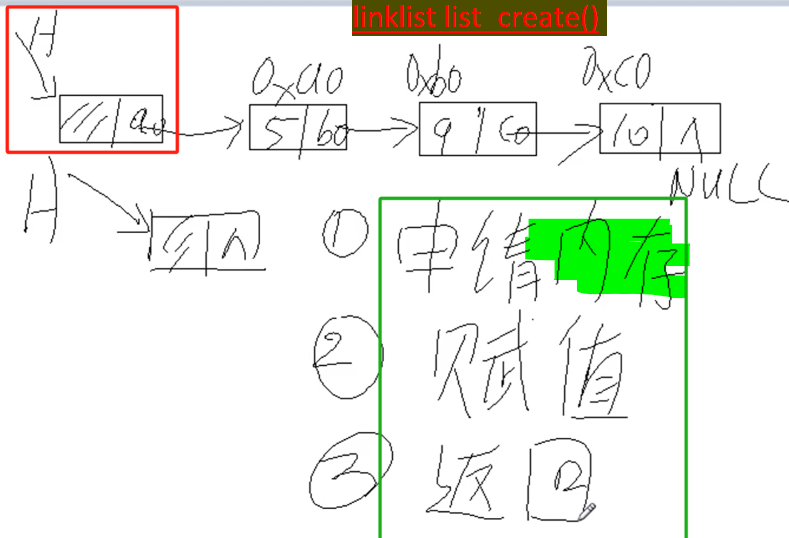 linklist list_create()
H
0xa0 0xb0 0xc0
a0 5 b0 9 c0 10 ∧
NULL
H
∧
① 申请内存
② 赋值
③ 返回